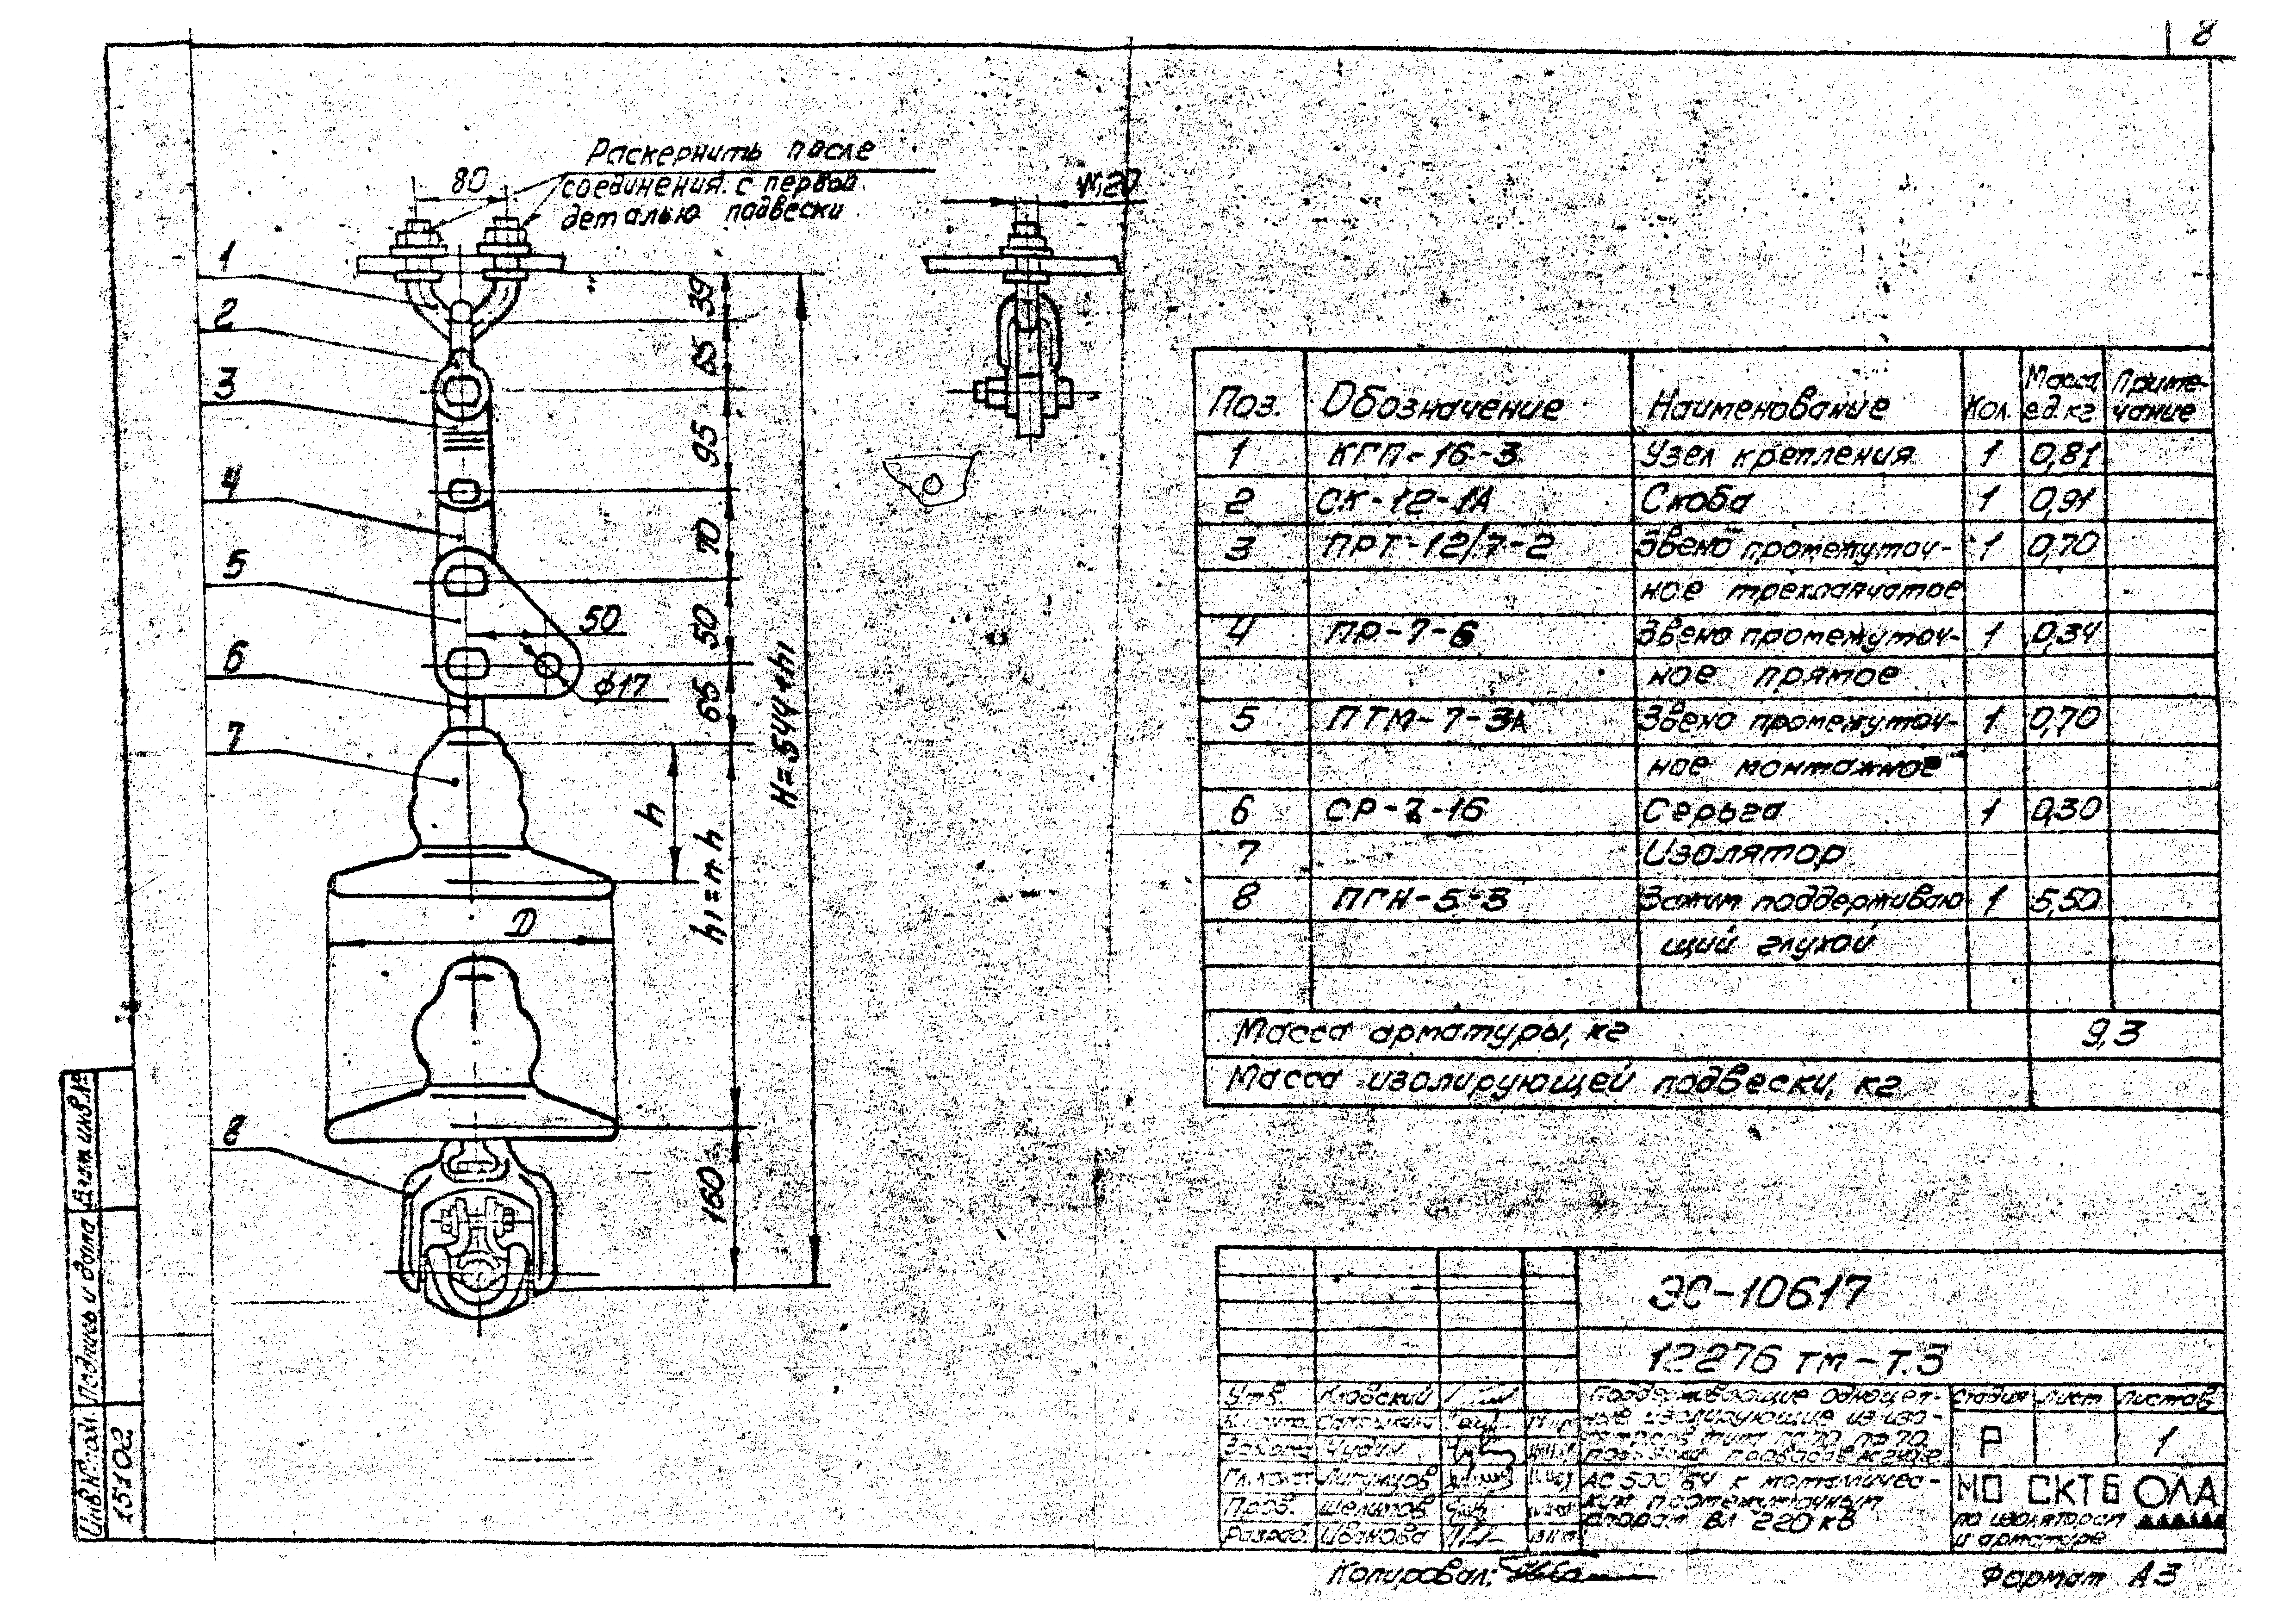 8
Раскернить после
соединения с первой
деталью подвески
80
М20
1
2
3
4
5
6
7
8
39
65
95
70
50
65
50
ф17
h
h1=n·h
H=544+h1
D
160
Поз. Обозначение Наименование Кол. Масса ед.кг Приме-чание
1 КГП-16-3 Узел крепления 1 0,81
2 СК-12-1А Скоба 1 0,91
3 ПРТ-12/7-2 Звено промежуточ- 1 0,70
ное трехлапчатое
4 ПР-7-6 Звено промежуточ- 1 0,34
ное прямое
5 ПТМ-7-3А Звено промежуточ- 1 0,70
ное монтажное
6 СР-7-16 Серьга 1 0,30
7 Изолятор
8 ПГН-5-3 Зажим поддерживаю 1 5,50
щий глухой
Масса арматуры, кг 9,3
Масса изолирующей подвески, кг
ЭС-10617
12276 тм-т.3
Утв.
Чудин
Пров. Шелипов
Разраб. Иванова
Поддерживающие одноцеп-
ные изолирующие из изо-
АС 500/64 к металличес-
ким промежуточным
опорам ВЛ 220 кВ
Стадия Лист Листов
Р 1
МО СКТБ ОЛА
по изоляторам
и арматуре
Копировал:
Формат А3
Взам инв.№
Подпись и дата
Инв.№ подл.
15102